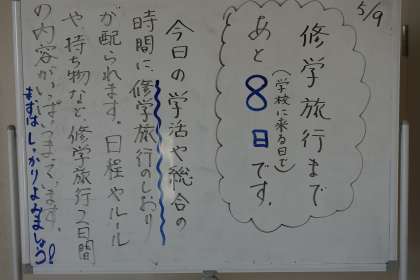 5/9
修学旅行まで
あと8日です。
(学校に来る日で)
今日の学活や総合の
時間に、修学旅行のしおり
が配られます。日程やルール
や持ち物など、修学旅行2日間
の内容がいっぱいつまっています。
まずはしっかりよみましょう!